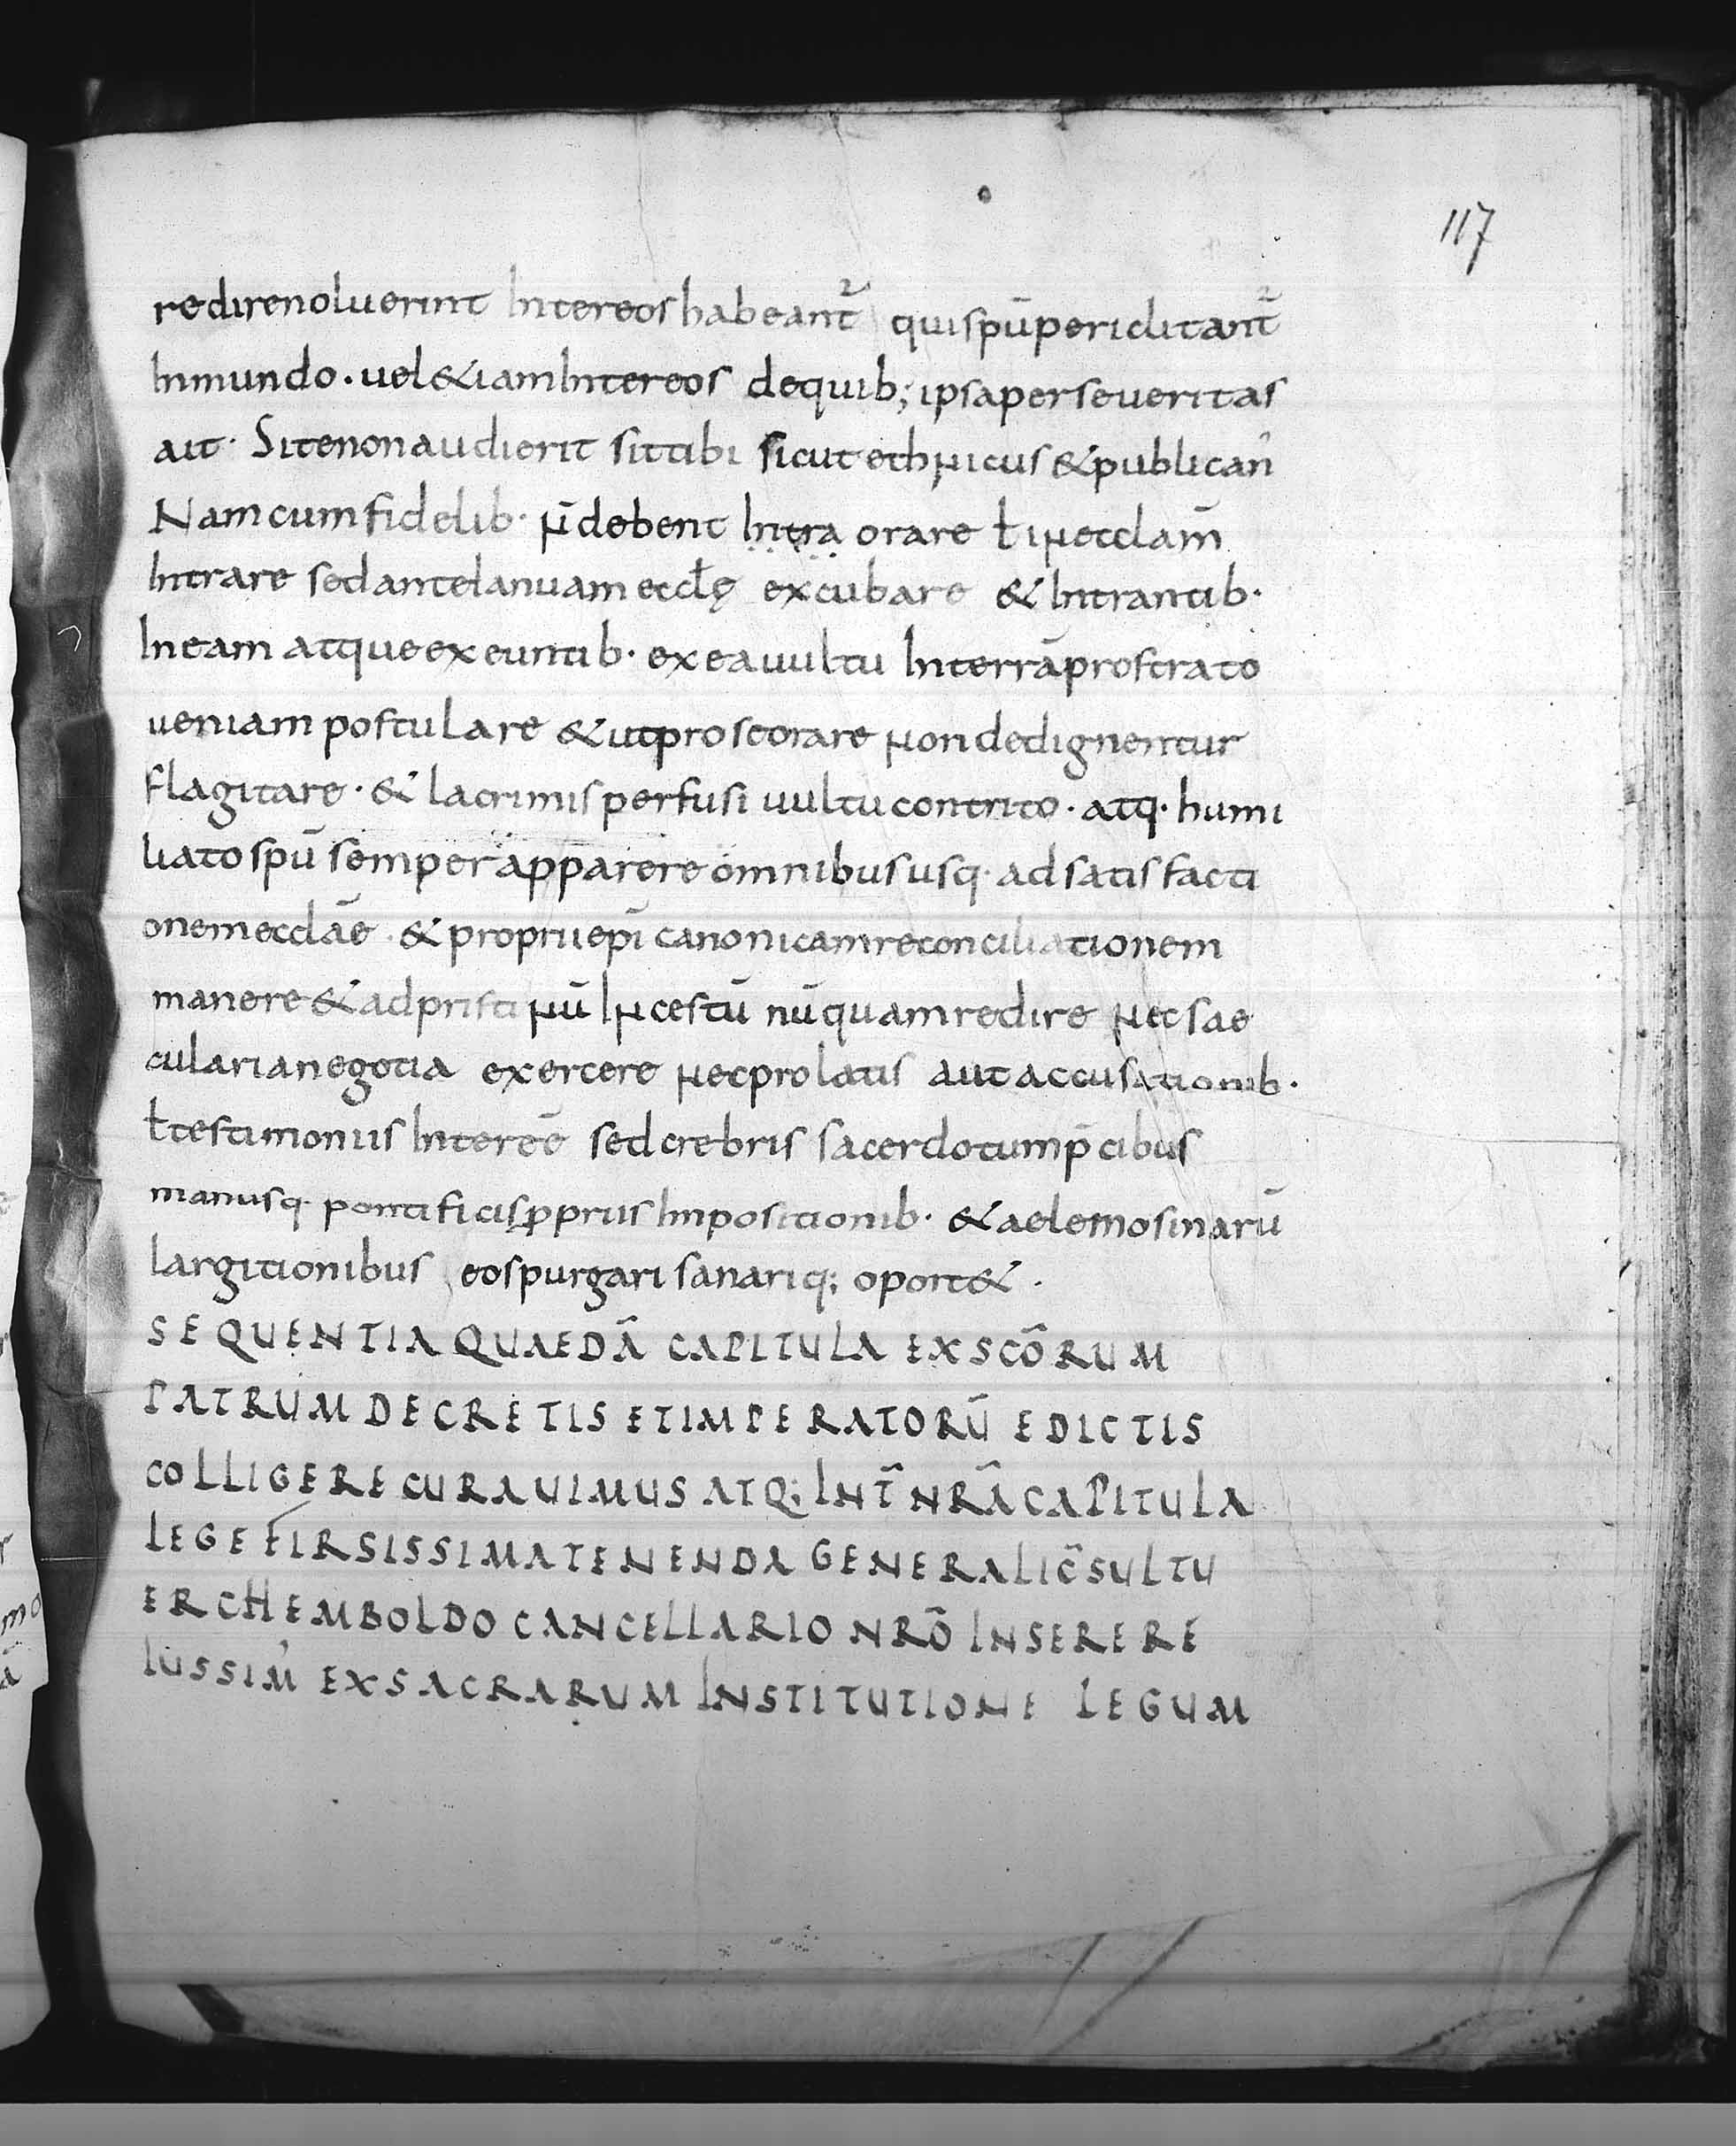 117
redirenoluerint Intereos habeant̄ quispūpericlitant̄
Inmundo. uel&iamIntereos dequib; ipsaperseueritas
ait· Sitenonaudierit sittibi sicut ethnicus &publican᾽
Namcumfidelib· n̄debent Intra orare ł inecclam̄
Intrare sedanteIanuam eccłę excubare & Intrantib·
Ineam atqueexeuntib· exeauultu Interrāprostrato
ueniam postulare &utproseorare nondedignentur
flagitare· & lacrimisperfusi uultucontrito· atq· humi
liatospū semperapparere omnibususq· adsatisfacti
onemecclāe · & propriiepī canonicamreconciliationem
manere&adpristi nū Incestū nūquamredire necsae
cularianegotia exercere necprolatis autaccusationib·
ł testimoniis Intereē sedcrebris sacerdotump̄cibus
manusq· pontificisꝓpriis Impositionib· &aelemosinarū
largitionibus eospurgari sanariq; oport&·
SEQUENTIA QUAEDĀ CAPITULA EXSCŌRUM
PATRUM DECRETIS ETIMPERATORŪ EDICTIS
COLLIGERE CURAUIMUS ATQ; INT̄ NRĀ CAPITULA
LEGE FIRSISSIMATENENDA GENERALIC̄SULTU
ERCHEMBOLDO CANCELLARIO NRŌ INSERERE
IUSSIM᾽ EXSACRARUM INSTITUTIONE LEGUM